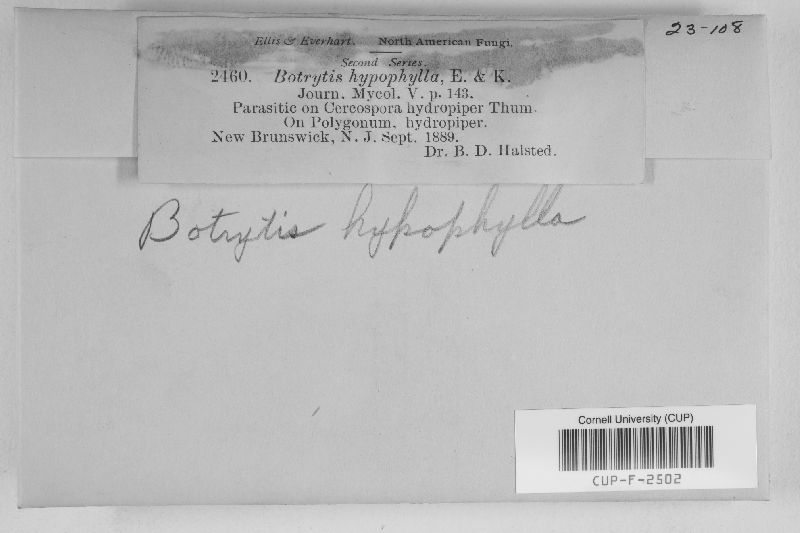 23-108
Ellis & Everhart. North American Fungi.
Second Series.
2460. Botrytis hypophylla, E. & K.
Journ. Mycol. V. p. 143.
Parasitic on Cercospora hydropiper Thum.
On Polygonum. hydropiper.
New Brunswick, N. J. Sept. 1889.
Dr. B. D. Halsted.
Botrytis hypophylla
Cornell University (CUP)
CUP-F-2502